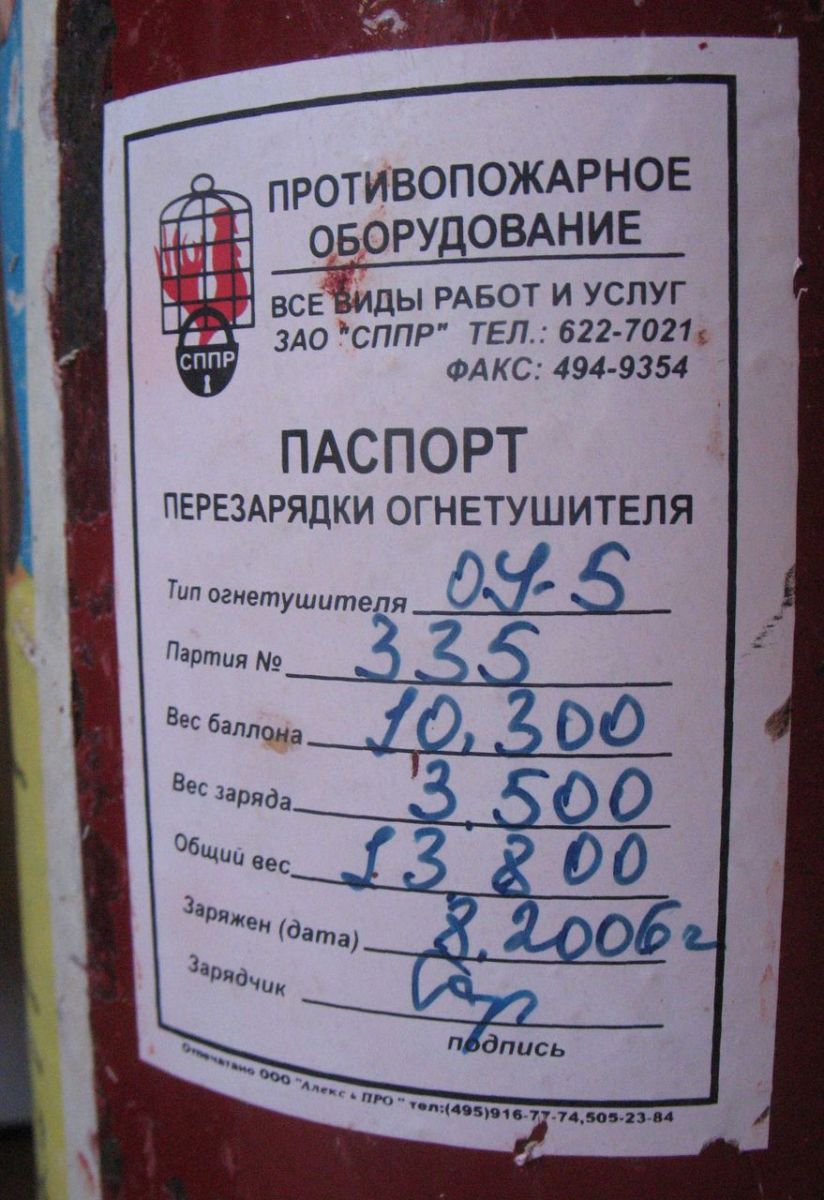 ПРОТИВОПОЖАРНОЕ
ОБОРУДОВАНИЕ
ВСЕ ВИДЫ РАБОТ И УСЛУГ
ЗАО "СППР" ТЕЛ.: 622-7021
ФАКС: 494-9354
СППР
ПАСПОРТ
ПЕРЕЗАРЯДКИ ОГНЕТУШИТЕЛЯ
Тип огнетушителя ОУ-5
Партия № 335
Вес баллона 10,300
Вес заряда 3,500
Общий вес 13,800
Заряжен (дата) 8.2006г
Зарядчик
подпись
Отпечатано ООО "Алекс ь ПРО" тел:(495)916-77-74,505-23-84